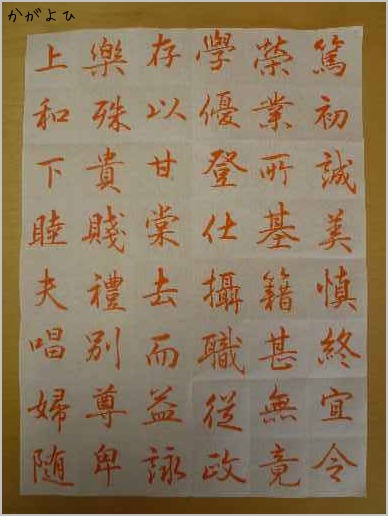 かがよひ
篤初誠美慎終宜令
榮業所基籍甚無竟
學優登仕攝職従政
存以甘棠去而益詠
樂殊貴賤禮別尊卑
上和下睦夫唱婦随